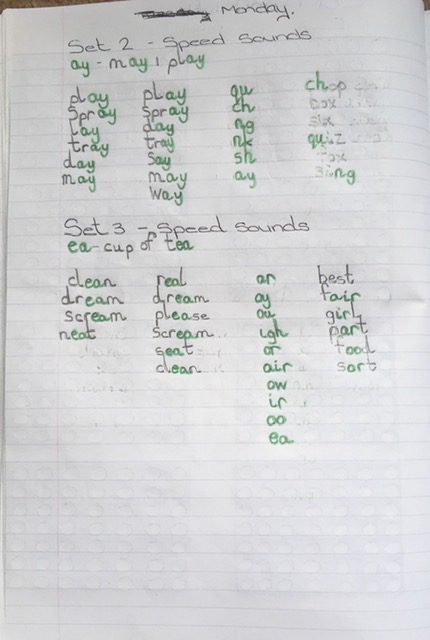 Monday.
Set 2 - Speed Sounds
ay - may I play
play play qu chop
spray spray ch box
lay day ng six
tray tray nk quiz
day say sh fox
may may ay sing
way
Set 3 - Speed Sounds
ea - cup of tea
clean real ar best
dream dream oy fair
scream please ou girl
neat scream igh part
seat or food
clean air sort
ow
ir
oo
ea